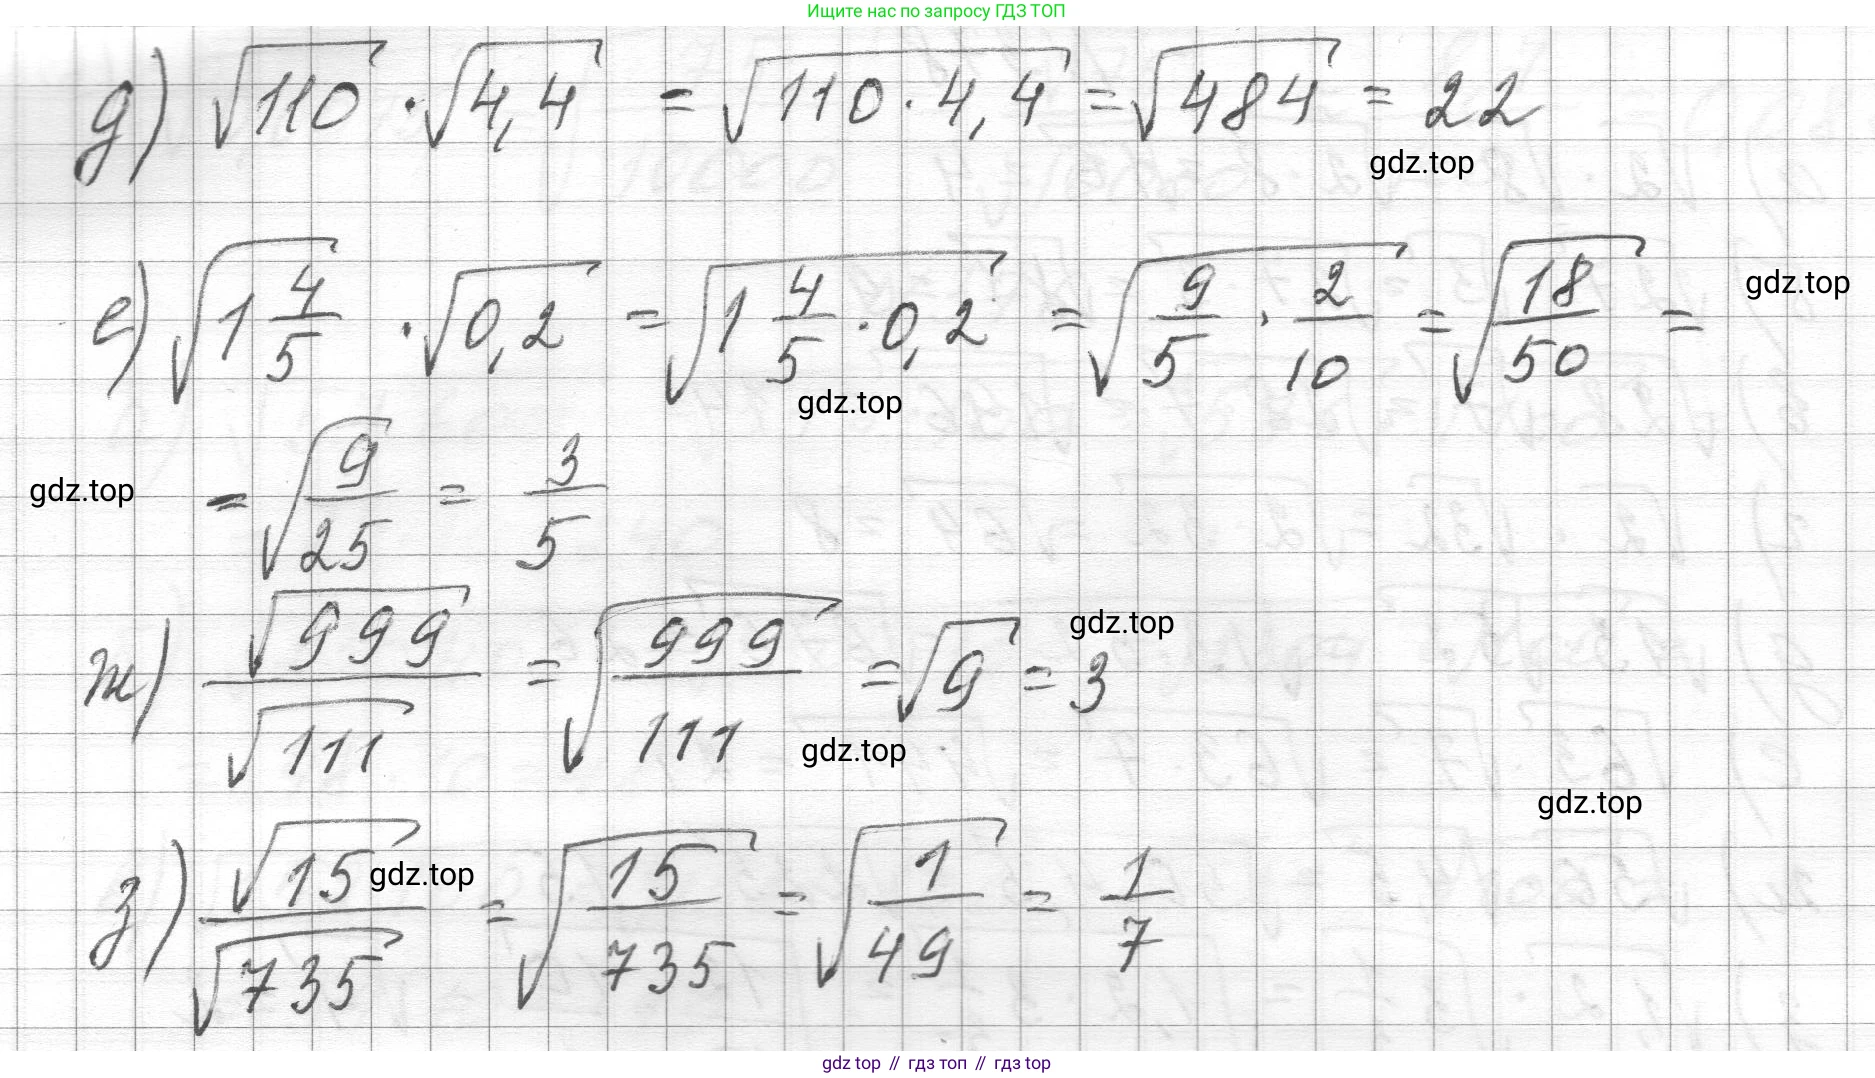 Ищите нас по запросу ГДЗ ТОП
д) √110 · √4,4 = √110 · 4,4 = √484 = 22
gdz.top
е) √1 4/5 · √0,2 = √1 4/5 · 0,2 = √9/5 · 2/10 = √18/50 =
gdz.top
gdz.top
gdz.top = √9/25 = 3/5
ж) √999/√111 = √999/111 = √9 = 3
gdz.top
gdz.top
gdz.top
з) √15/√735 = √15/735 = √1/49 = 1/7
gdz.top
gdz top // гдз топ // гдз top